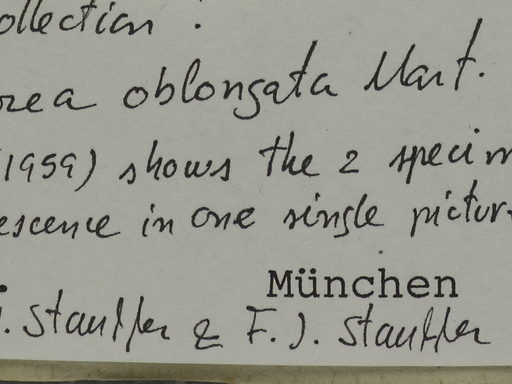 ollection :
rea oblongata Mart.
(1959) shows the 2 specim
escence in one single pictur
München
. Stauffer & F. J. Stauffer